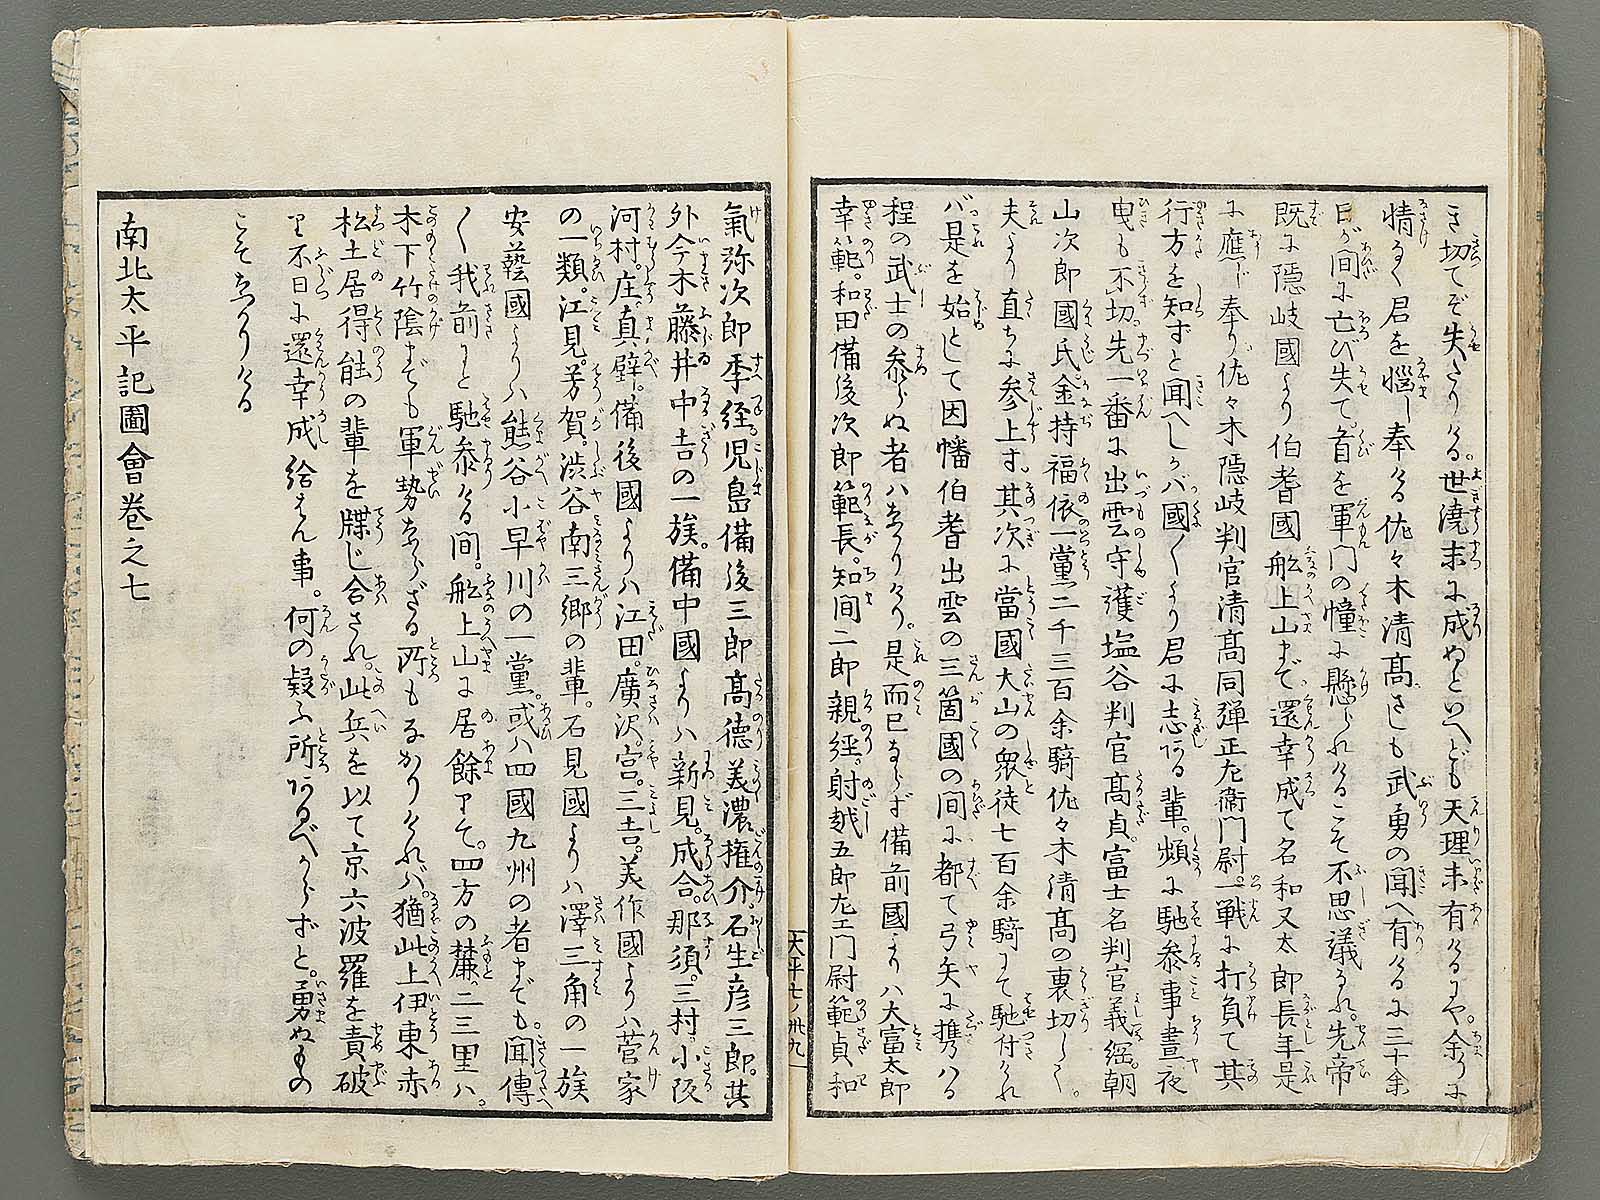 き切てぞ失たりける。世澆末に成ぬといへども天理未有けるにや。余りに
情なく君を惱し奉りける佐々木清髙さしも武勇の聞へ有けるに三十余
日が間に亡び失て。首を軍門の幢に懸られけるこそ不思議なれ。先帝
既に隠岐國より伯耆國舩上山まで。還幸成て名和又太郎長年是
に應じ奉り。佐々木隠岐判官清髙同弾正左衛門尉。一戦に打負て其
行方を知ずと聞へしかバ國〱より君に志ある輩。頻に馳参事晝夜
曳も不切。先一番に出雲守護塩谷判官髙貞。富士名判官義綱。朝
山次郎國氏金持福依一黨二千三百余騎佐々木清髙の裏切して。
夫より直ちに参上す。其次に當國大山の衆徒七百余騎にて馳付けれ
バ是を始として因幡伯耆出雲の三箇國の間に都て弓矢に携ハる
程の武士の参らぬ者ハなかりけり。是而已ならず備前國よりハ大富太郎
幸範。和田備後次郎範長。知間二郎親経。射越五郎左エ門尉範貞和
大平七ノ卅九
氣弥次郎季経児島備後三郎髙徳美濃権介石生彦三郎。其
外今木藤井中吉の一族。備中國よりハ新見。成合。那須。三村。小阪
河村。庄。真壁。備後國よりハ江田。廣沢。宮。三吉。美作國よりハ菅家
の一類。江見。芳賀。渋谷南三郷の輩。石見國よりハ澤三角の一族
安藝國よりハ熊谷小早川の一黨。或ハ四國九州の者までも。聞傳
〱我前にと馳参ける間。舩上山に居餘りて。四方の麓。二三里ハ。
木下竹陰までも軍勢ならざる所もなかりけれバ。猶此上伊東赤
松土居得能の輩を牒じ合され。此兵を以て京六波羅を責破
り不日に還幸成給はん事。何の疑ふ所あるべからずと。勇ぬもの
こそなかりける
南北太平記圖會巻之七